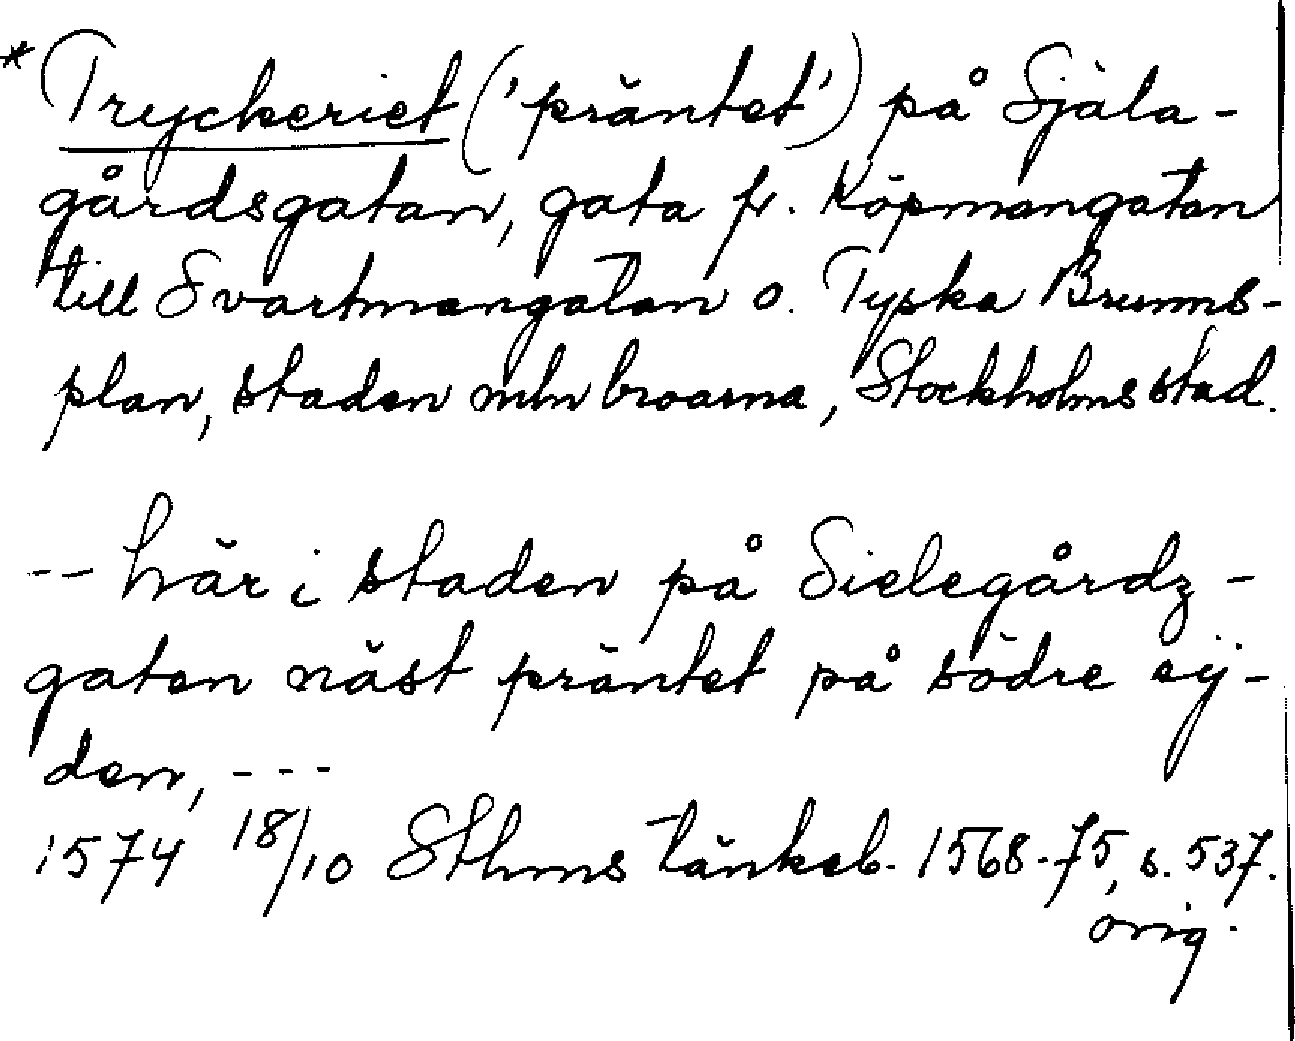 *Tryckeriet ('präntet') på Själa-
gårdsgatan, gata fr. Köpmangatan
till Svartmangatan o. Tyska Brunns-
plan, staden mln broarna, Stockholms stad.
-- här i staden på Sielegårdz-
gaten näst präntet på södre sij-
den, ---
1574 18/10 Sthms tänkeb. 1568-75, s. 537.
orig.